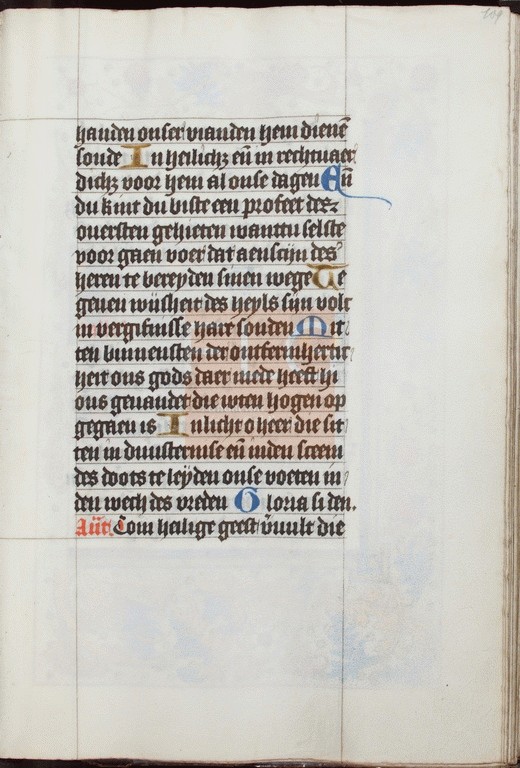 handen onser vianden hem dienē
sonde In heilichʒ eñ in rechtuaer
dichʒ voor hem al onse dagen Eñ
du kint du biste een profeet desʒ
ouersten gehieten wanttu selste
voor gaen voer dat aenscijn des
heren te bereyden sinen wege Te
geuen wijsheit des heyls sijn volc
in vergifnisse hare sonden Mit
ten binnensten der ontfermhertic
heit ons gods daer mede heeft hi
ons geuandet die wten hogen op
gegaen is Inlicht o heer die sit
ten in duusternise eñ inden sceem
des doots te leyden onse voeten in
den wech des vreden Gloria si den.
Añt. Com heilige geest v̄vult die